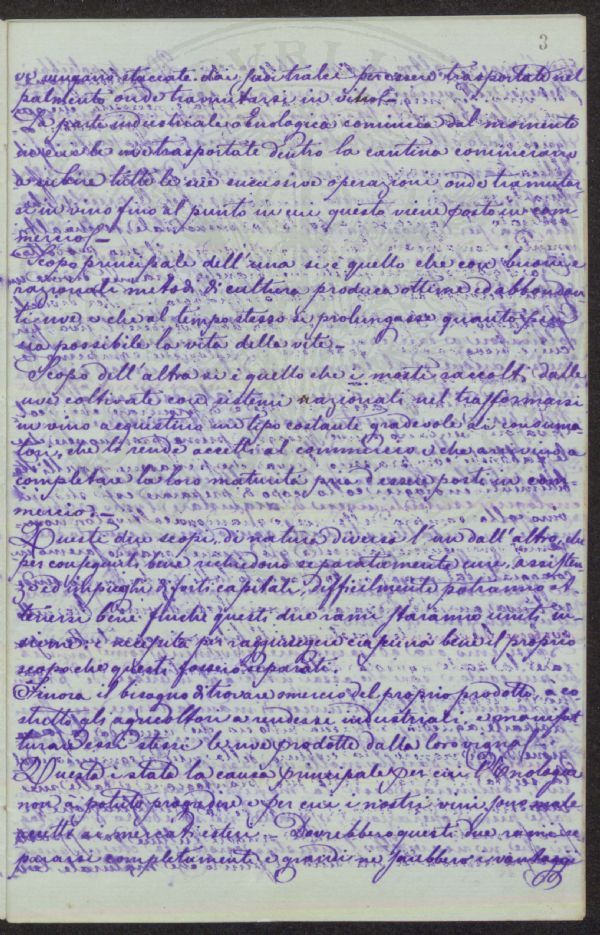 3
vengano staccate dai suoi tralci per essere trasportate nel
palmento onde tramutarsi in vino. –
La parte industriale o Enologica comincia dal momento
in cui le uve trasportate dentro la cantina cominciano
a subire tutte le sue successive operazioni onde tramutar
si in vino fino al punto in cui questo viene posto in com-
mercio. –
Scopo principale dell'una si è quello che con buoni e
razionali metodi di cultura produca ottime ed abbondan
ti uve e che al tempo stesso si prolungasse quanto più
sia possibile la vita della vite. –
Scopo dell'altra si è quello che i mosti raccolti dalle
uve coltivate con sistemi razionali nel trasformarsi
in vino acquistino un tipo costante gradevole ai consuma
tori, che li rende accetti al commercio e che arrivino a
completare la loro maturità pria d'essere posti in com-
mercio. –
Questi due scopi, di natura diversa l'un dall'altro, che
per conseguirli bene richiedono separatamente cure, assisten
za ed impieghi di forti capitali, difficilmente potranno ot-
tenersi bene finchè questi due rami staranno uniti in-
sieme; e necessita per raggiungere ciascuno bene il proprio
scopo che questi fossero separati.
Finora il bisogno di trovare smercio del proprio prodotto, à co
stretto gli agricoltori a rendersi industriali e manifat
turare essi stessi le uve prodotte dalla loro vigna. –
Questa è stata la causa principale per cui l'Enologia
non à potuto progredire e per cui i nostri vini sono male
accetti ai mercati esteri. – Dovrebbero questi due rami se
pararsi completamente e grandi ne sarebbero i vantaggi